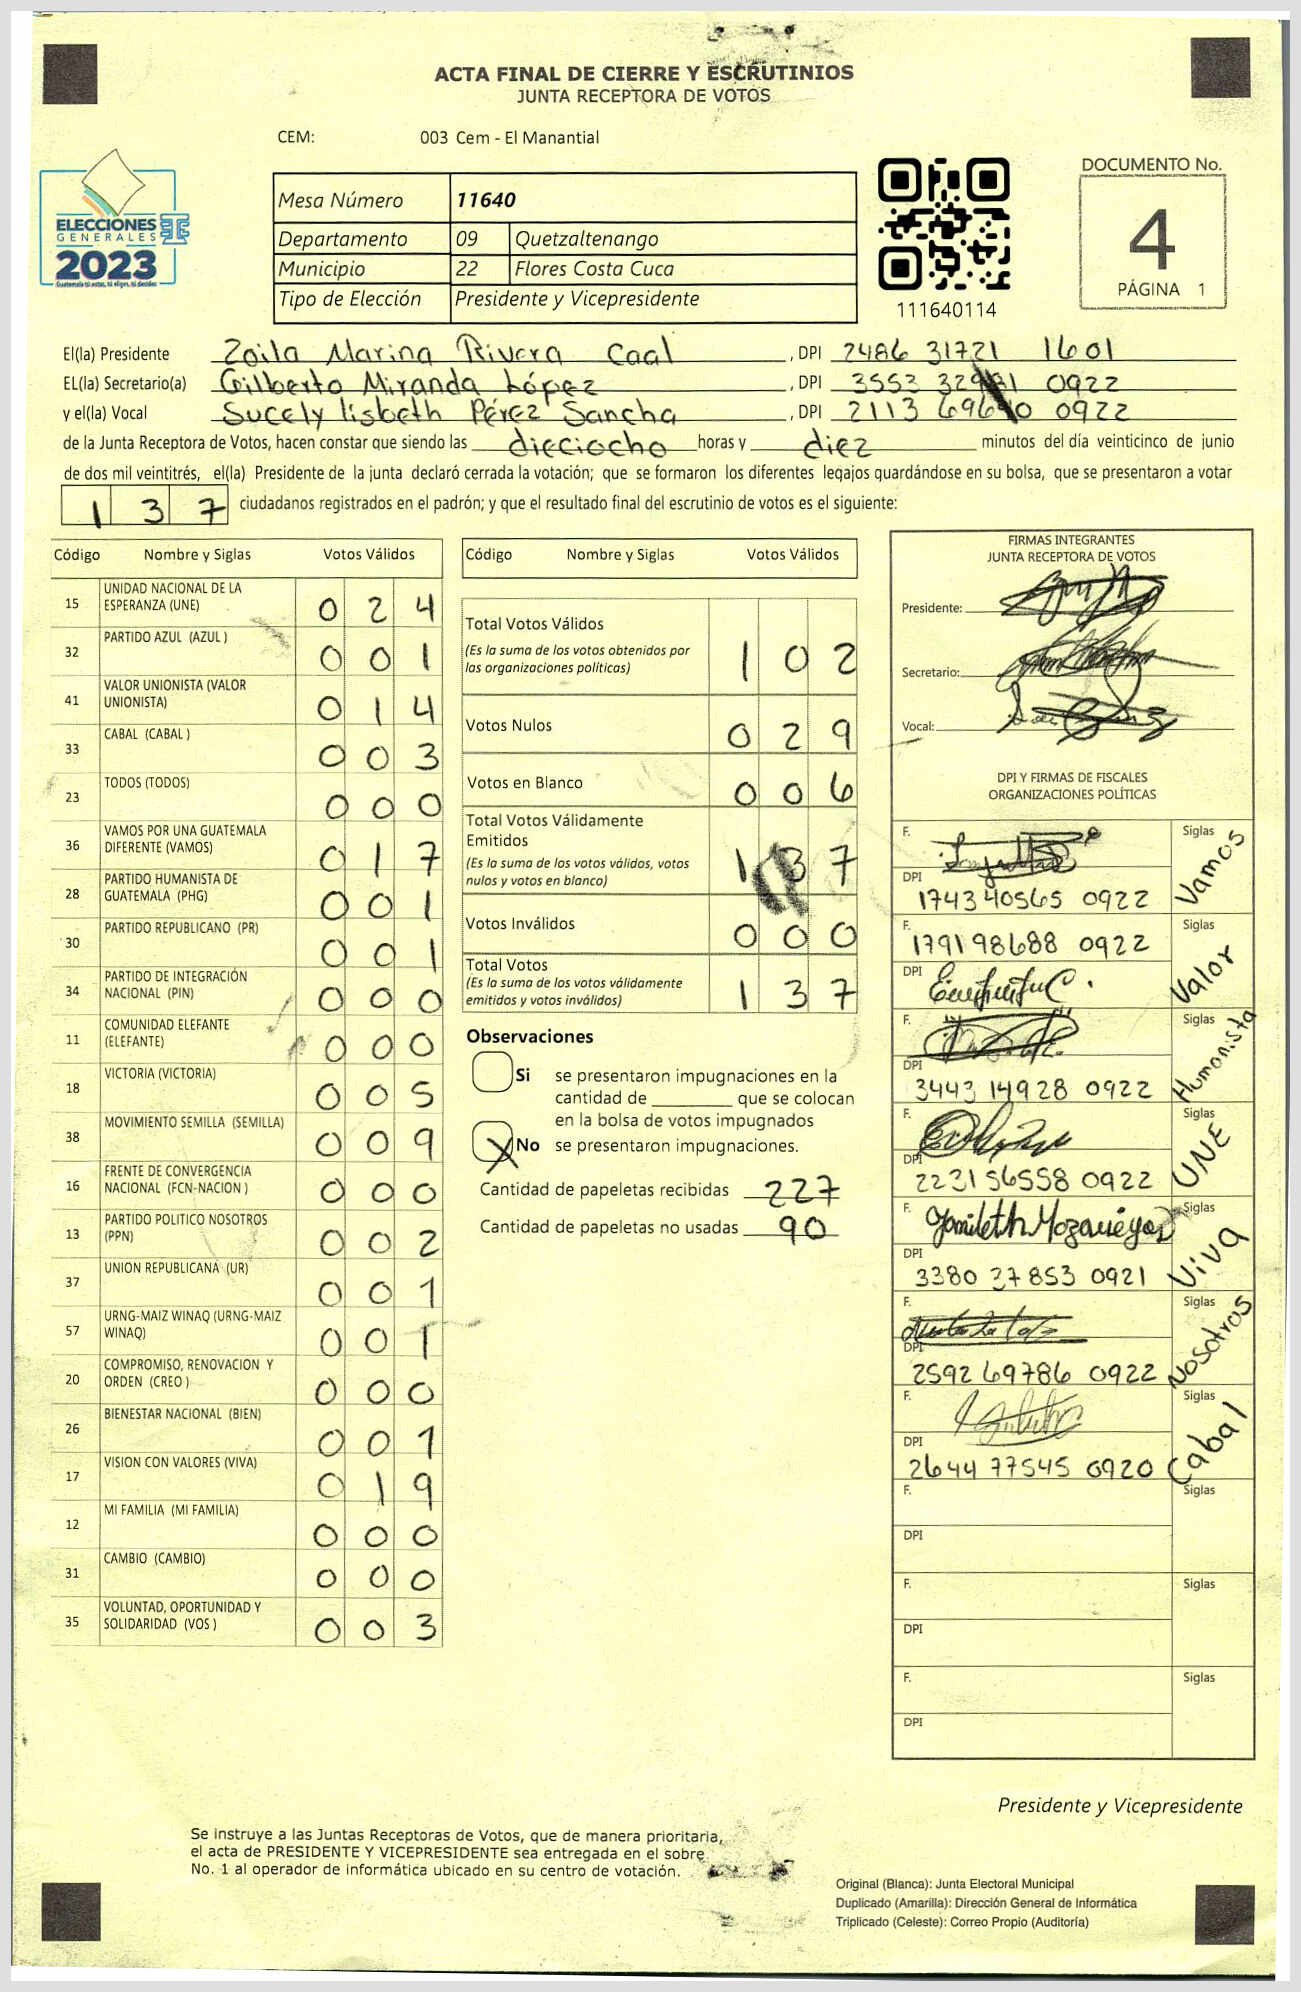 ACTA FINAL DE CIERRE Y ESCRUTINIOS
JUNTA RECEPTORA DE VOTOS
CEM: 003 Cem - El Manantial
ELECCIONES
GENERALES
2023
Guatemala tú estas, tú eliges, tú decides
Mesa Número 11640
Departamento 09 Quetzaltenango
Municipio 22 Flores Costa Cuca
Tipo de Elección Presidente y Vicepresidente
111640114
DOCUMENTO No.
4
PÁGINA 1
El(la) Presidente Zoila Marina Rivera Caal , DPI 2486 31721 1601
EL(la) Secretario(a) Gilberto Miranda López , DPI 3553 0922
y el(la) Vocal Sucely lisbeth Pérez Sancha , DPI 2113 0922
de la Junta Receptora de Votos, hacen constar que siendo las dieciocho horas y diez minutos del día veinticinco de junio
de dos mil veintitrés, el(la) Presidente de la junta declaró cerrada la votación; que se formaron los diferentes legajos guardándose en su bolsa, que se presentaron a votar
137 ciudadanos registrados en el padrón; y que el resultado final del escrutinio de votos es el siguiente:
Código Nombre y Siglas Votos Válidos
15 UNIDAD NACIONAL DE LA
ESPERANZA (UNE) 0 2 4
32 PARTIDO AZUL (AZUL ) 0 0 1
41 VALOR UNIONISTA (VALOR
UNIONISTA) 0 1 4
33 CABAL (CABAL ) 0 0 3
23 TODOS (TODOS) 0 0 0
36 VAMOS POR UNA GUATEMALA
DIFERENTE (VAMOS) 0 1 7
28 PARTIDO HUMANISTA DE
GUATEMALA (PHG) 0 0 1
30 PARTIDO REPUBLICANO (PR) 0 0 1
34 PARTIDO DE INTEGRACIÓN
NACIONAL (PIN) 0 0 0
11 COMUNIDAD ELEFANTE
(ELEFANTE) 0 0 0
18 VICTORIA (VICTORIA) 0 0 5
38 MOVIMIENTO SEMILLA (SEMILLA) 0 0 9
16 FRENTE DE CONVERGENCIA
NACIONAL (FCN-NACION ) 0 0 0
13 PARTIDO POLITICO NOSOTROS
(PPN) 0 0 2
37 UNION REPUBLICANA (UR) 0 0 1
57 URNG-MAIZ WINAQ (URNG-MAIZ
WINAQ) 0 0 1
20 COMPROMISO, RENOVACION Y
ORDEN (CREO ) 0 0 0
26 BIENESTAR NACIONAL (BIEN) 0 0 1
17 VISION CON VALORES (VIVA) 0 1 9
12 MI FAMILIA (MI FAMILIA) 0 0 0
31 CAMBIO (CAMBIO) 0 0 0
35 VOLUNTAD, OPORTUNIDAD Y
SOLIDARIDAD (VOS ) 0 0 3
Código Nombre y Siglas Votos Válidos
Total Votos Válidos
(Es la suma de los votos obtenidos por
las organizaciones políticas) 1 0 2
Votos Nulos 0 2 9
Votos en Blanco 0 0 6
Total Votos Válidamente
Emitidos
(Es la suma de los votos válidos, votos
nulos y votos en blanco) 1 3 7
Votos Inválidos 0 0 0
Total Votos
(Es la suma de los votos válidamente
emitidos y votos inválidos) 1 3 7
Observaciones
Si se presentaron impugnaciones en la
cantidad de ________ que se colocan
en la bolsa de votos impugnados
X No se presentaron impugnaciones.
Cantidad de papeletas recibidas 227
Cantidad de papeletas no usadas 90
FIRMAS INTEGRANTES
JUNTA RECEPTORA DE VOTOS
Presidente:
Secretario:
Vocal:
DPI Y FIRMAS DE FISCALES
ORGANIZACIONES POLÍTICAS
F. Siglas Vamos
DPI
1743 40565 0922
F. Siglas Valor
1791 98688 0922
DPI
F. Siglas Humanista
DPI
3443 14928 0922
F. Siglas UNE
DPI
2231 56558 0922
F. Yamileth Siglas Viva
DPI
3380 37853 0921
F. Siglas Nosotros
DPI
2592 69786 0922
F. Siglas Cabal
DPI
2644 77545 0920
F. Siglas
DPI
F. Siglas
DPI
F. Siglas
DPI
Presidente y Vicepresidente
Se instruye a las Juntas Receptoras de Votos, que de manera prioritaria,
el acta de PRESIDENTE Y VICEPRESIDENTE sea entregada en el sobre
No. 1 al operador de informática ubicado en su centro de votación.
Original (Blanca): Junta Electoral Municipal
Duplicado (Amarilla): Dirección General de Informática
Triplicado (Celeste): Correo Propio (Auditoría)